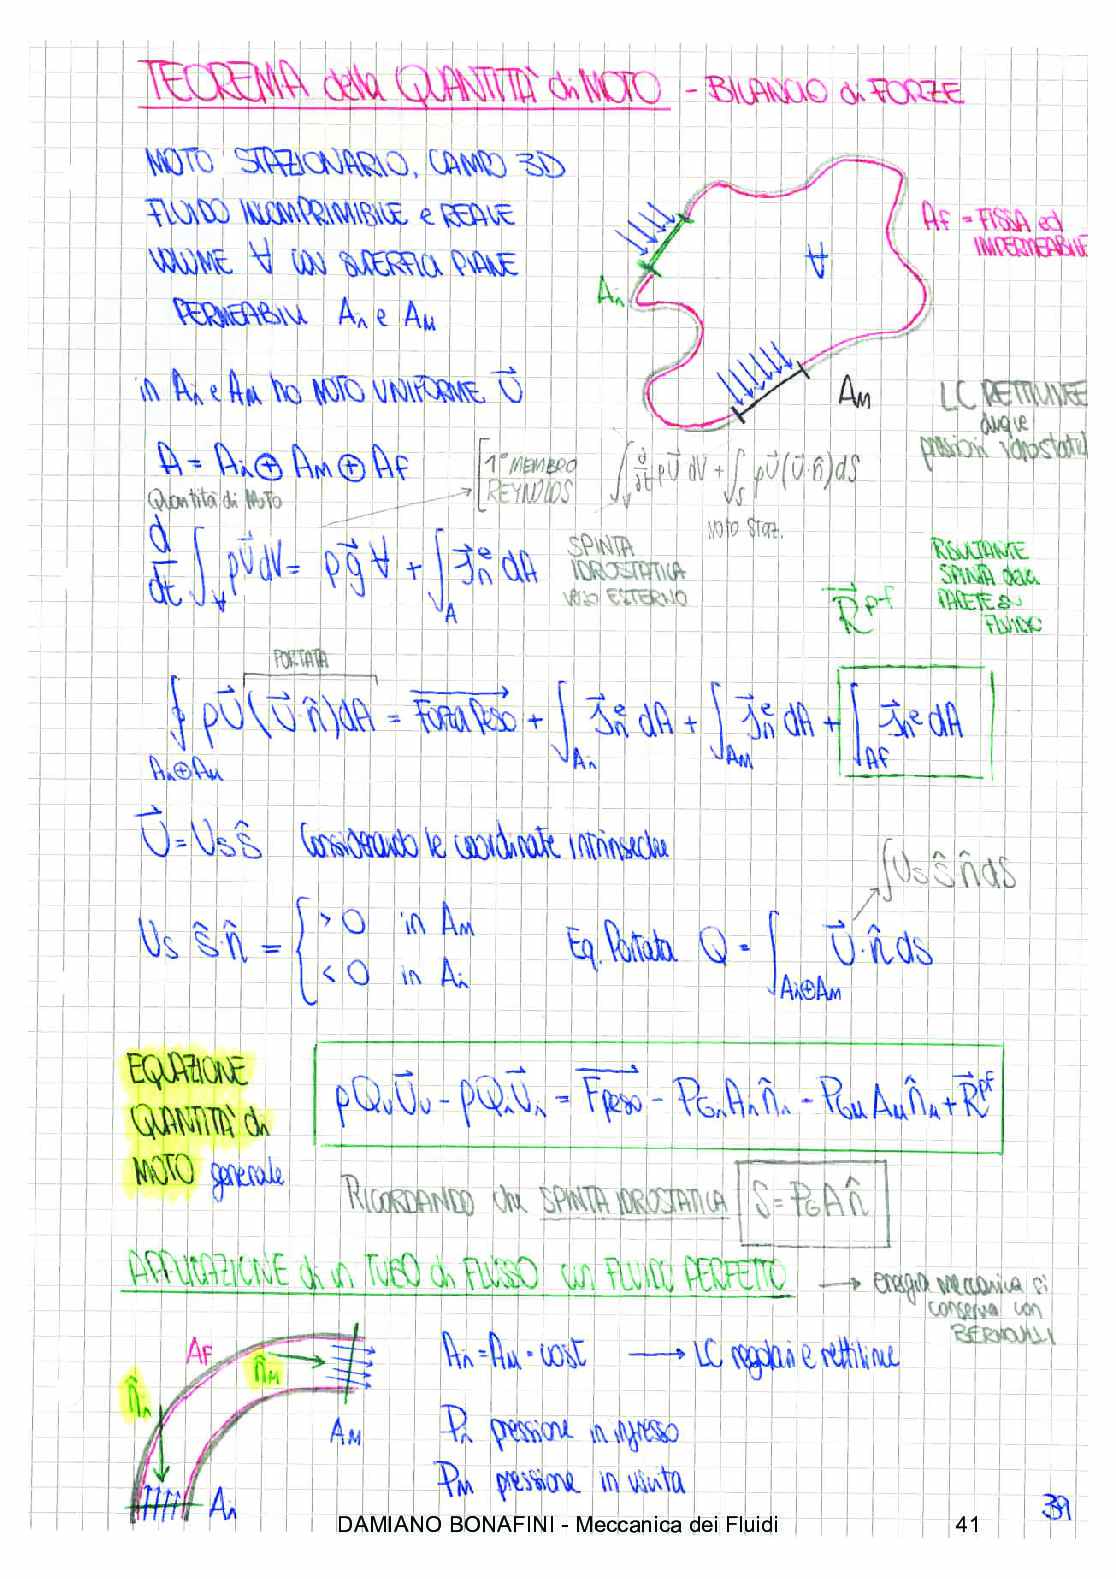 TEOREMA della QUANTITÀ di MOTO - BILANCIO di FORZE
MOTO STAZIONARIO, CAMPO 3D
FLUIDO INCOMPRIMIBILE e REALE
VOLUME ∀ con SUPERFICI PIANE
PERMEABILI Ai e AM
Af = FISSA ed
IMPERMEABILE
∀
Ai
in Ai e AM ho MOTO UNIFORME U⃗
AM
LC RETTILINEE
dunque
pressioni idrostatiche
A = Ai ⊕ AM ⊕ Af
[1° MEMBRO
REYNOLDS
∫∀ ∂/∂t ρU⃗ dV + ∫S ρU⃗(U⃗·n̂)dS
Quantità di Moto
MOTO STAZ.
d/dt ∫∀ ρU⃗dV = ρg⃗∀ + ∫A σ⃗nᵉ dA
SPINTA
IDROSTATICA
verso ESTERNO
R⃗ᵖᶠ
RISULTANTE
SPINTA della
PARETE su
FLUIDO
PORTATA
∮ ρU⃗(U⃗·n̂)dA = Forza Peso + ∫Ai σ⃗nᵉ dA + ∫AM σ⃗nᵉ dA + ∫Af σ⃗nᵉ dA
Ai⊕AM
U⃗ = Us ŝ Considerando le coordinate intrinseche
∫Us ŝ n̂ dS
Us ŝ·n̂ = { > 0 in AM
< 0 in Ai
Eq. Portata Q = ∫Ai⊕AM U⃗·n̂ dS
EQUAZIONE
QUANTITÀ di
MOTO generale
ρQuU⃗u - ρQiU⃗i = Fpeso - PGi Ai n̂i - PGM AM n̂M + R⃗ᵖᶠ
RICORDANDO che SPINTA IDROSTATICA S = PG A n̂
APPLICAZIONE di un TUBO di FLUSSO con FLUIDO PERFETTO → energia meccanica si
conserva con
BERNOULLI
AF
n̂M
n̂i
AM
Ai
Ai = AM = cost → LC regolari e rettilinee
Pi pressione in ingresso
PM pressione in uscita
39
DAMIANO BONAFINI - Meccanica dei Fluidi 41